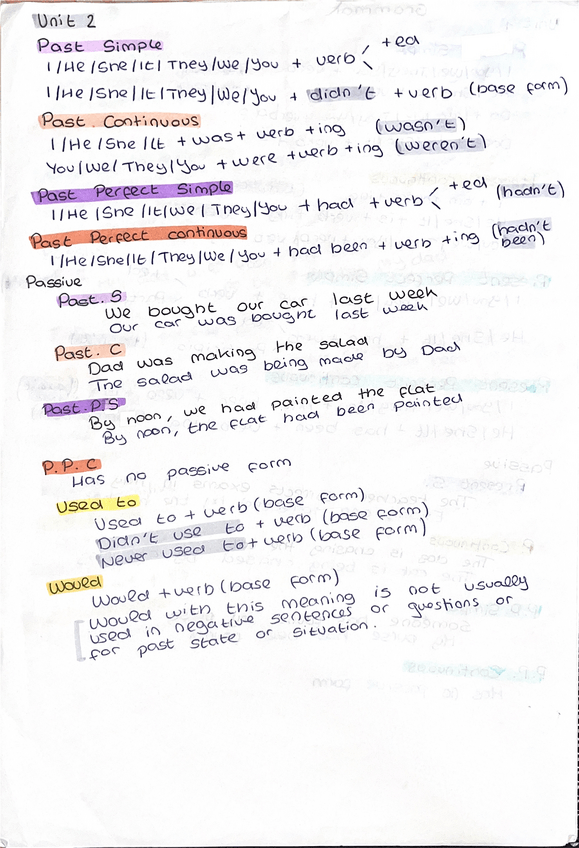 Unit 2
Past Simple
I/He/She/It/They/We/You + verb < +ed
I/He/She/It/They/We/You + didn't + verb (base form)
Past Continuous
I/He/She/It + was + verb + ing (wasn't)
You/We/They/You + were + verb + ing (weren't)
Past Perfect Simple
I/He/She/It/We/They/You + had + verb < +ed (hadn't)
Past Perfect continuous
I/He/She/It/They/We/You + had been + verb + ing (hadn't been)
Passive
Past. S
We bought our car last week
Our car was bought last week
Past. C
Dad was making the salad
The salad was being made by Dad
Past. P S
By noon, we had painted the flat
By noon, the flat had been painted
P.P.C
Has no passive form
Used to
Used to + verb (base form)
Didn't use to + verb (base form)
Never used to + verb (base form)
Would
Would + verb (base form)
Would with this meaning is not usually
used in negative sentences or questions or
for past state or situation.